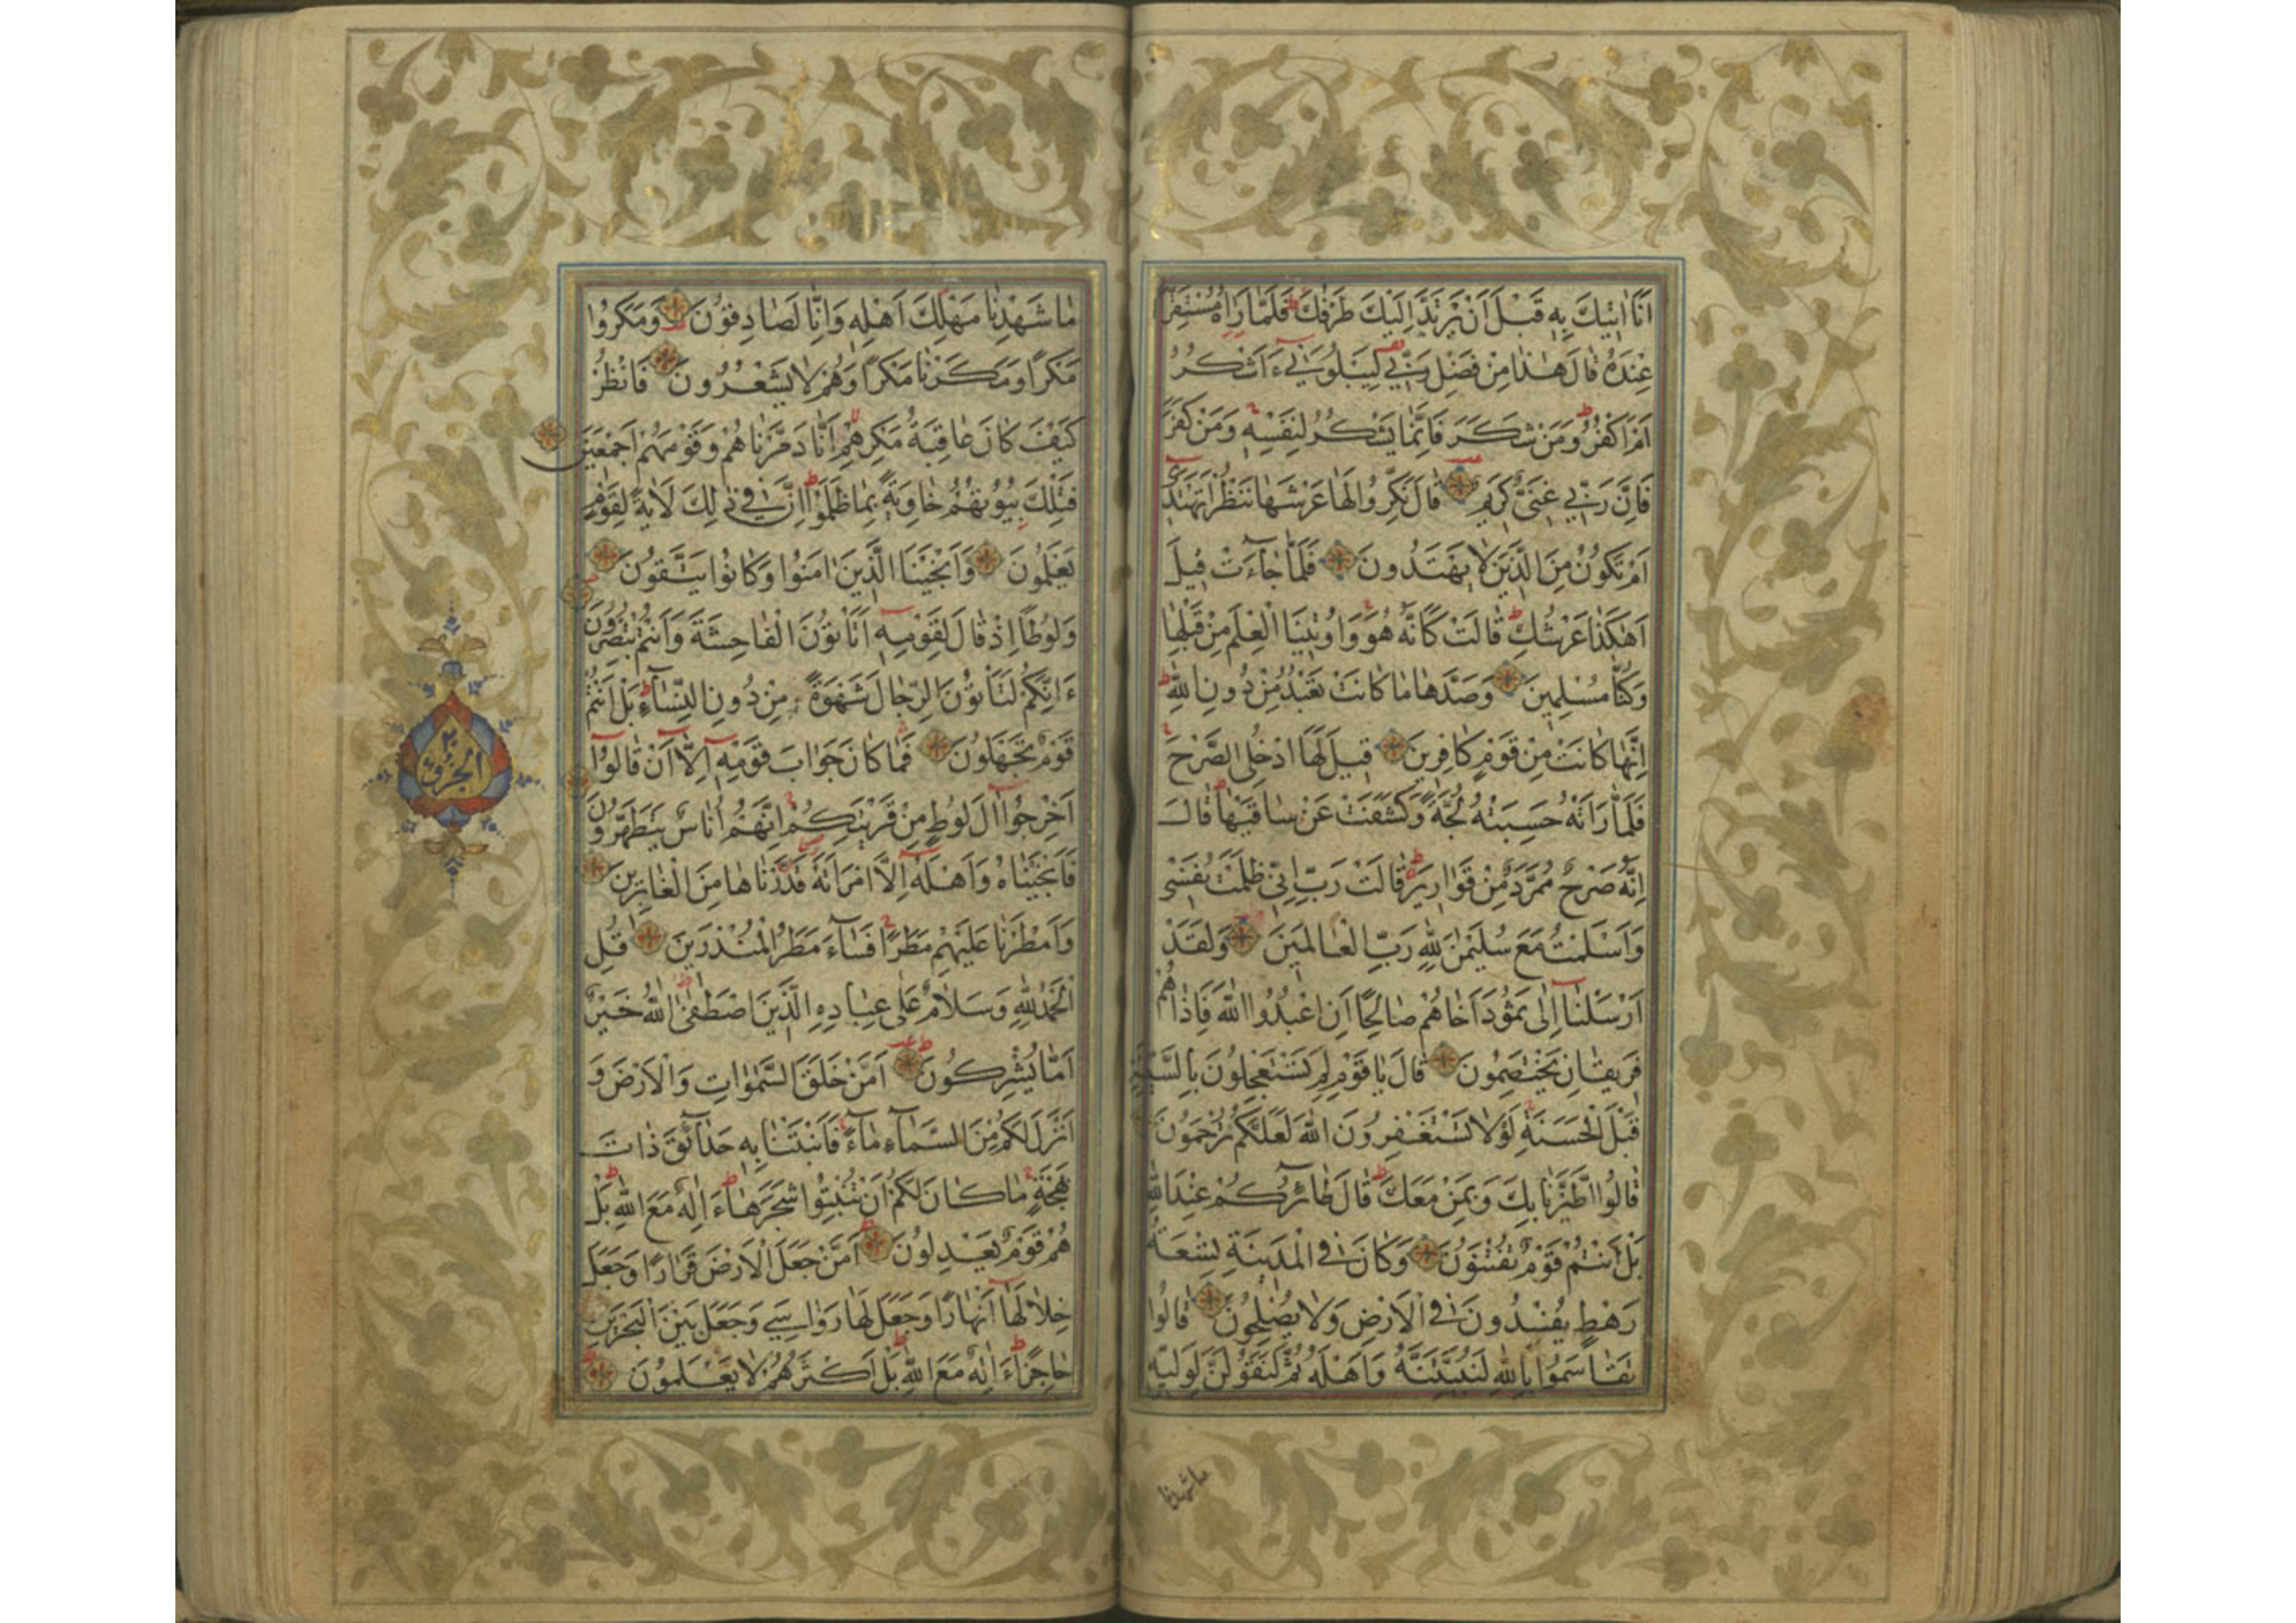 اَنَا۬ اٰتٖيكَ بِهٖ قَبْلَ اَنْ يَرْتَدَّ اِلَيْكَ طَرْفُكَ ط فَلَمَّا رَاٰهُ مُسْتَقِرًّا
عِنْدَهُ قَالَ هٰذَا مِنْ فَضْلِ رَبّٖي لِيَبْلُوَنٖي ءَاَشْكُرُ
اَمْ اَكْفُرُ ط وَمَنْ شَكَرَ فَاِنَّمَا يَشْكُرُ لِنَفْسِهٖ ج وَمَنْ كَفَرَ
فَاِنَّ رَبّٖي غَنِىٌّ كَرٖيمٌ قَالَ نَكِّرُوا لَهَا عَرْشَهَا نَنْظُرْ اَتَهْتَدٖى
اَمْ تَكُونُ مِنَ الَّذٖينَ لَا يَهْتَدُونَ فَلَمَّا جَاۤءَتْ قٖيلَ
اَهٰكَذَا عَرْشُكِ ط قَالَتْ كَاَنَّهُ هُوَ ج وَاُوتٖينَا الْعِلْمَ مِنْ قَبْلِهَا
وَكُنَّا مُسْلِمٖينَ وَصَدَّهَا مَا كَانَتْ تَعْبُدُ مِنْ دُونِ اللّٰهِ ط
اِنَّهَا كَانَتْ مِنْ قَوْمٍ كَافِرٖينَ قٖيلَ لَهَا ادْخُلِى الصَّرْحَ ج
فَلَمَّا رَاَتْهُ حَسِبَتْهُ لُجَّةً وَكَشَفَتْ عَنْ سَاقَيْهَا ط قَالَ
اِنَّهُ صَرْحٌ مُمَرَّدٌ مِنْ قَوَارٖيرَ ط قَالَتْ رَبِّ اِنّٖى ظَلَمْتُ نَفْسٖى
وَاَسْلَمْتُ مَعَ سُلَيْمٰنَ لِلّٰهِ رَبِّ الْعَالَمٖينَ وَلَقَدْ
اَرْسَلْنَاۤ اِلٰى ثَمُودَ اَخَاهُمْ صَالِحًا اَنِ اعْبُدُوا اللّٰهَ فَاِذَا هُمْ
فَرٖيقَانِ يَخْتَصِمُونَ قَالَ يَا قَوْمِ لِمَ تَسْتَعْجِلُونَ بِالسَّيِّئَةِ
قَبْلَ الْحَسَنَةِ ج لَوْلَا تَسْتَغْفِرُونَ اللّٰهَ لَعَلَّكُمْ تُرْحَمُونَ
قَالُوا اطَّيَّرْنَا بِكَ وَبِمَنْ مَعَكَ ط قَالَ طَاۤئِرُكُمْ عِنْدَ اللّٰهِ
بَلْ اَنْتُمْ قَوْمٌ تُفْتَنُونَ وَكَانَ فِى الْمَدٖينَةِ تِسْعَةُ
رَهْطٍ يُفْسِدُونَ فِى الْاَرْضِ وَلَا يُصْلِحُونَ قَالُوا
تَقَاسَمُوا بِاللّٰهِ لَنُبَيِّتَنَّهُ وَاَهْلَهُ ثُمَّ لَنَقُولَنَّ لِوَلِيِّهٖ
ما شهدنا
مَا شَهِدْنَا مَهْلِكَ اَهْلِهٖ وَاِنَّا لَصَادِقُونَ وَمَكَرُوا
مَكْرًا وَمَكَرْنَا مَكْرًا وَهُمْ لَا يَشْعُرُونَ فَانْظُرْ
كَيْفَ كَانَ عَاقِبَةُ مَكْرِهِمْ لا اَنَّا دَمَّرْنَاهُمْ وَقَوْمَهُمْ اَجْمَعٖينَ
فَتِلْكَ بُيُوتُهُمْ خَاوِيَةً بِمَا ظَلَمُوا ط اِنَّ فٖى ذٰلِكَ لَاٰيَةً لِقَوْمٍ
يَعْلَمُونَ وَاَنْجَيْنَا الَّذٖينَ اٰمَنُوا وَكَانُوا يَتَّقُونَ
وَلُوطًا اِذْ قَالَ لِقَوْمِهٖۤ اَتَاْتُونَ الْفَاحِشَةَ وَاَنْتُمْ تُبْصِرُونَ
ءَاِنَّكُمْ لَتَاْتُونَ الرِّجَالَ شَهْوَةً مِنْ دُونِ النِّسَاۤءِ ط بَلْ اَنْتُمْ
قَوْمٌ تَجْهَلُونَ فَمَا كَانَ جَوَابَ قَوْمِهٖۤ اِلَّاۤ اَنْ قَالُوۤا
اَخْرِجُوۤا اٰلَ لُوطٍ مِنْ قَرْيَتِكُمْ ج اِنَّهُمْ اُنَاسٌ يَتَطَهَّرُونَ
فَاَنْجَيْنَاهُ وَاَهْلَهُۤ اِلَّا امْرَاَتَهُ قَدَّرْنَاهَا مِنَ الْغَابِرٖينَ
وَاَمْطَرْنَا عَلَيْهِمْ مَطَرًا ج فَسَاۤءَ مَطَرُ الْمُنْذَرٖينَ قُلِ
الْحَمْدُ لِلّٰهِ وَسَلَامٌ عَلٰى عِبَادِهِ الَّذٖينَ اصْطَفٰى ط اٰللّٰهُ خَيْرٌ
اَمَّا يُشْرِكُونَ اَمَّنْ خَلَقَ السَّمٰوَاتِ وَالْاَرْضَ وَ
اَنْزَلَ لَكُمْ مِنَ السَّمَاۤءِ مَاۤءً ج فَاَنْبَتْنَا بِهٖ حَدَاۤئِقَ ذَاتَ
بَهْجَةٍ ج مَا كَانَ لَكُمْ اَنْ تُنْبِتُوا شَجَرَهَا ط ءَاِلٰهٌ مَعَ اللّٰهِ ط بَلْ
هُمْ قَوْمٌ يَعْدِلُونَ ط اَمَّنْ جَعَلَ الْاَرْضَ قَرَارًا وَجَعَلَ
خِلَالَهَاۤ اَنْهَارًا وَجَعَلَ لَهَا رَوَاسِىَ وَجَعَلَ بَيْنَ الْبَحْرَيْنِ
حَاجِزًا ط ءَاِلٰهٌ مَعَ اللّٰهِ ط بَلْ اَكْثَرُهُمْ لَا يَعْلَمُونَ ط
الحزب